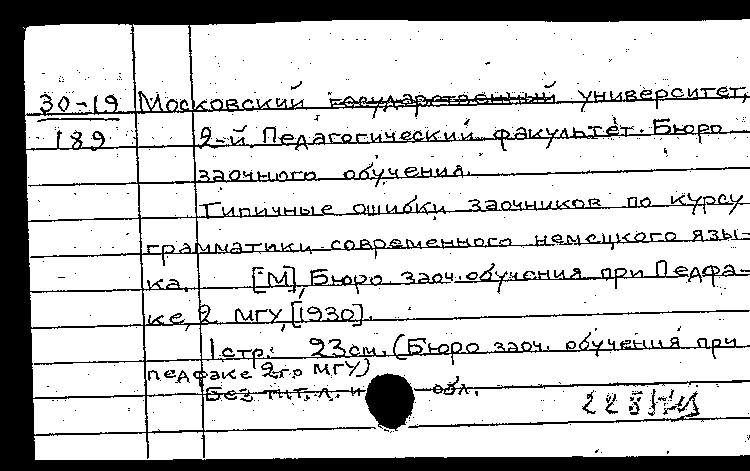 30-19 Московский государственный университет,
189 2-й Педагогический факультет. Бюро
заочного обучения.
Типичные ошибки заочников по курсу
грамматики современного немецкого язы-
ка. [М], Бюро заоч. обучения при Педфа-
ке, 2 МГУ, [1930].
1 стр. 23 см. (Бюро заоч. обучения при
педфаке 2го МГУ)
Без тит. л. и обл.